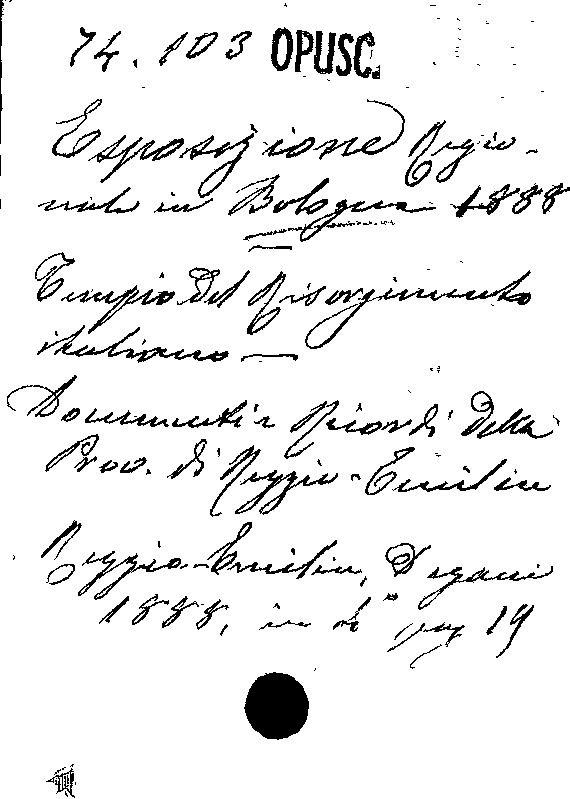 74.103 OPUSC.
Esposizione Regio-
nale in Bologna 1888
Tempio del Risorgimento
italiano —
Documenti e Ricordi della
Prov. di Reggio-Emilia
Reggio-Emilia, Degani
1888, in 4° pag 19